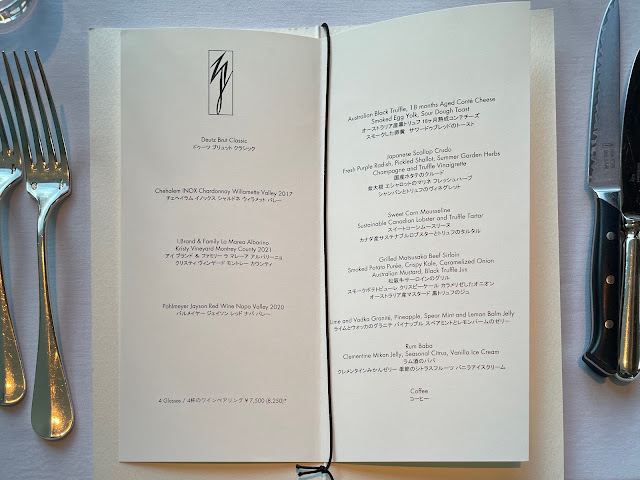 Deutz Brut Classic
ドゥーツ ブリュット クラシック
Chehalem INOX Chardonnay Willamette Valley 2017
チェヘイラム イノックス シャルドネ ウィラメット バレー
I.Brand & Family La Marea Albarino
Kristy Vineyard Montrey County 2021
アイ ブランド & ファミリー ラ マレーア アルバリーニョ
クリスティ ヴィンヤード モントレー カウンティ
Pahlmeyer Jayson Red Wine Napa Valley 2020
パルメイヤー ジェイソン レッド ナパ バレー
4 Glasses / 4杯のワインペアリング ¥7,500 (8,250)*
Australian Black Truffle, 18 months Aged Conté Cheese
Smoked Egg Yolk, Sour Dough Toast
オーストラリア産黒トリュフ 18ヶ月熟成コンテチーズ
スモークした卵黄 サワードゥブレッドのトースト
Japanese Scallop Crudo
Fresh Purple Radish, Pickled Shallot, Summer Garden Herbs
Champagne and Truffle Vinaigrette
国産ホタテのクルード
紫大根 エシャロットのマリネ フレッシュハーブ
シャンパンとトリュフのヴィネグレット
Sweet Corn Mousseline
Sustainable Canadian Lobster and Truffle Tartar
スイートコーンムースリーヌ
カナダ産サステナブルロブスターとトリュフのタルタル
Grilled Matsusaka Beef Sirloin
Smoked Potato Purée, Crispy Kale, Caramelized Onion
Australian Mustard, Black Truffle Jus
松阪牛サーロインのグリル
スモークポテトピューレ クリスピーケール カラメリゼしたオニオン
オーストラリア産マスタード 黒トリュフのジュ
Lime and Vodka Granité, Pineapple, Spear Mint and Lemon Balm Jelly
ライムとウォッカのグラニテ パイナップル スペアミントとレモンバームのゼリー
Rum Baba
Clementine Mikan Jelly, Seasonal Citrus, Vanilla Ice Cream
ラム酒のババ
クレメンタインみかんゼリー 季節のシトラスフルーツ バニラアイスクリーム
Coffee
コーヒー